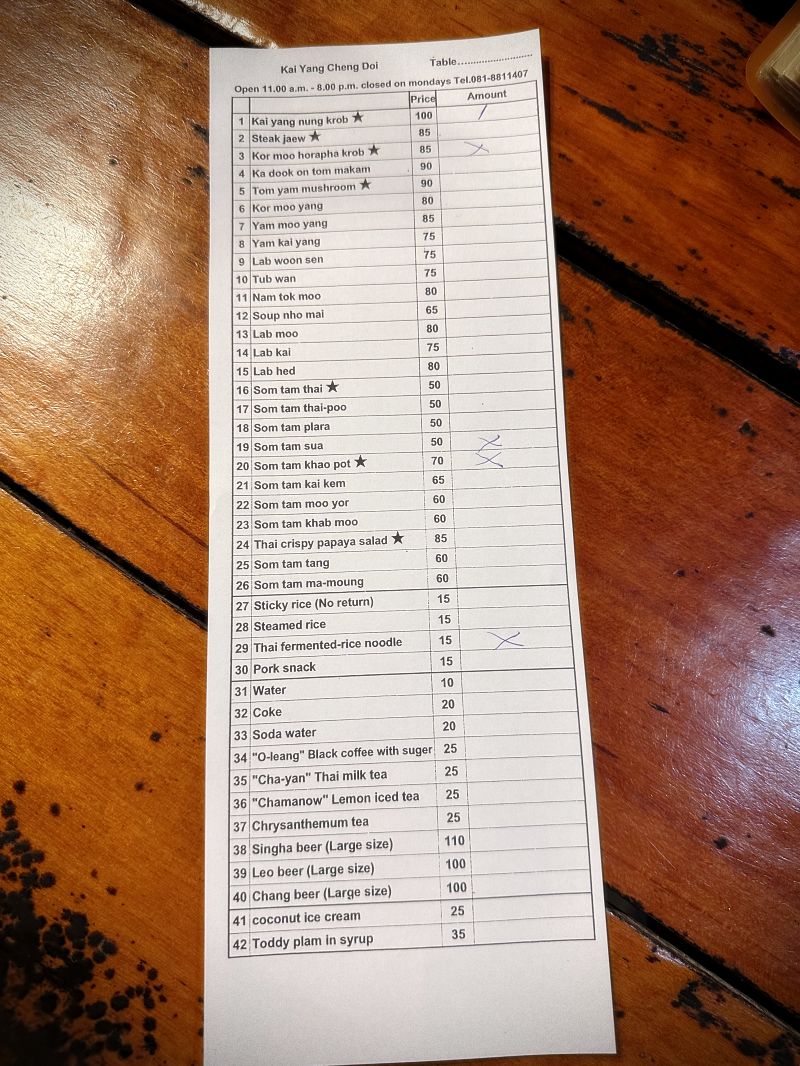 Kai Yang Cheng Doi Table...........................
Open 11.00 a.m. - 8.00 p.m. closed on mondays Tel.081-8811407
Price Amount
1 Kai yang nung krob ★ 100 /
2 Steak jaew ★ 85
3 Kor moo horapha krob ★ 85 X
4 Ka dook on tom makam 90
5 Tom yam mushroom ★ 90
6 Kor moo yang 80
7 Yam moo yang 85
8 Yam kai yang 75
9 Lab woon sen 75
10 Tub wan 75
11 Nam tok moo 80
12 Soup nho mai 65
13 Lab moo 80
14 Lab kai 75
15 Lab hed 80
16 Som tam thai ★ 50
17 Som tam thai-poo 50
18 Som tam plara 50
19 Som tam sua 50 X
20 Som tam khao pot ★ 70 X
21 Som tam kai kem 65
22 Som tam moo yor 60
23 Som tam khab moo 60
24 Thai crispy papaya salad ★ 85
25 Som tam tang 60
26 Som tam ma-moung 60
27 Sticky rice (No return) 15
28 Steamed rice 15
29 Thai fermented-rice noodle 15 X
30 Pork snack 15
31 Water 10
32 Coke 20
33 Soda water 20
34 "O-leang" Black coffee with suger 25
35 "Cha-yan" Thai milk tea 25
36 "Chamanow" Lemon iced tea 25
37 Chrysanthemum tea 25
38 Singha beer (Large size) 110
39 Leo beer (Large size) 100
40 Chang beer (Large size) 100
41 coconut ice cream 25
42 Toddy plam in syrup 35